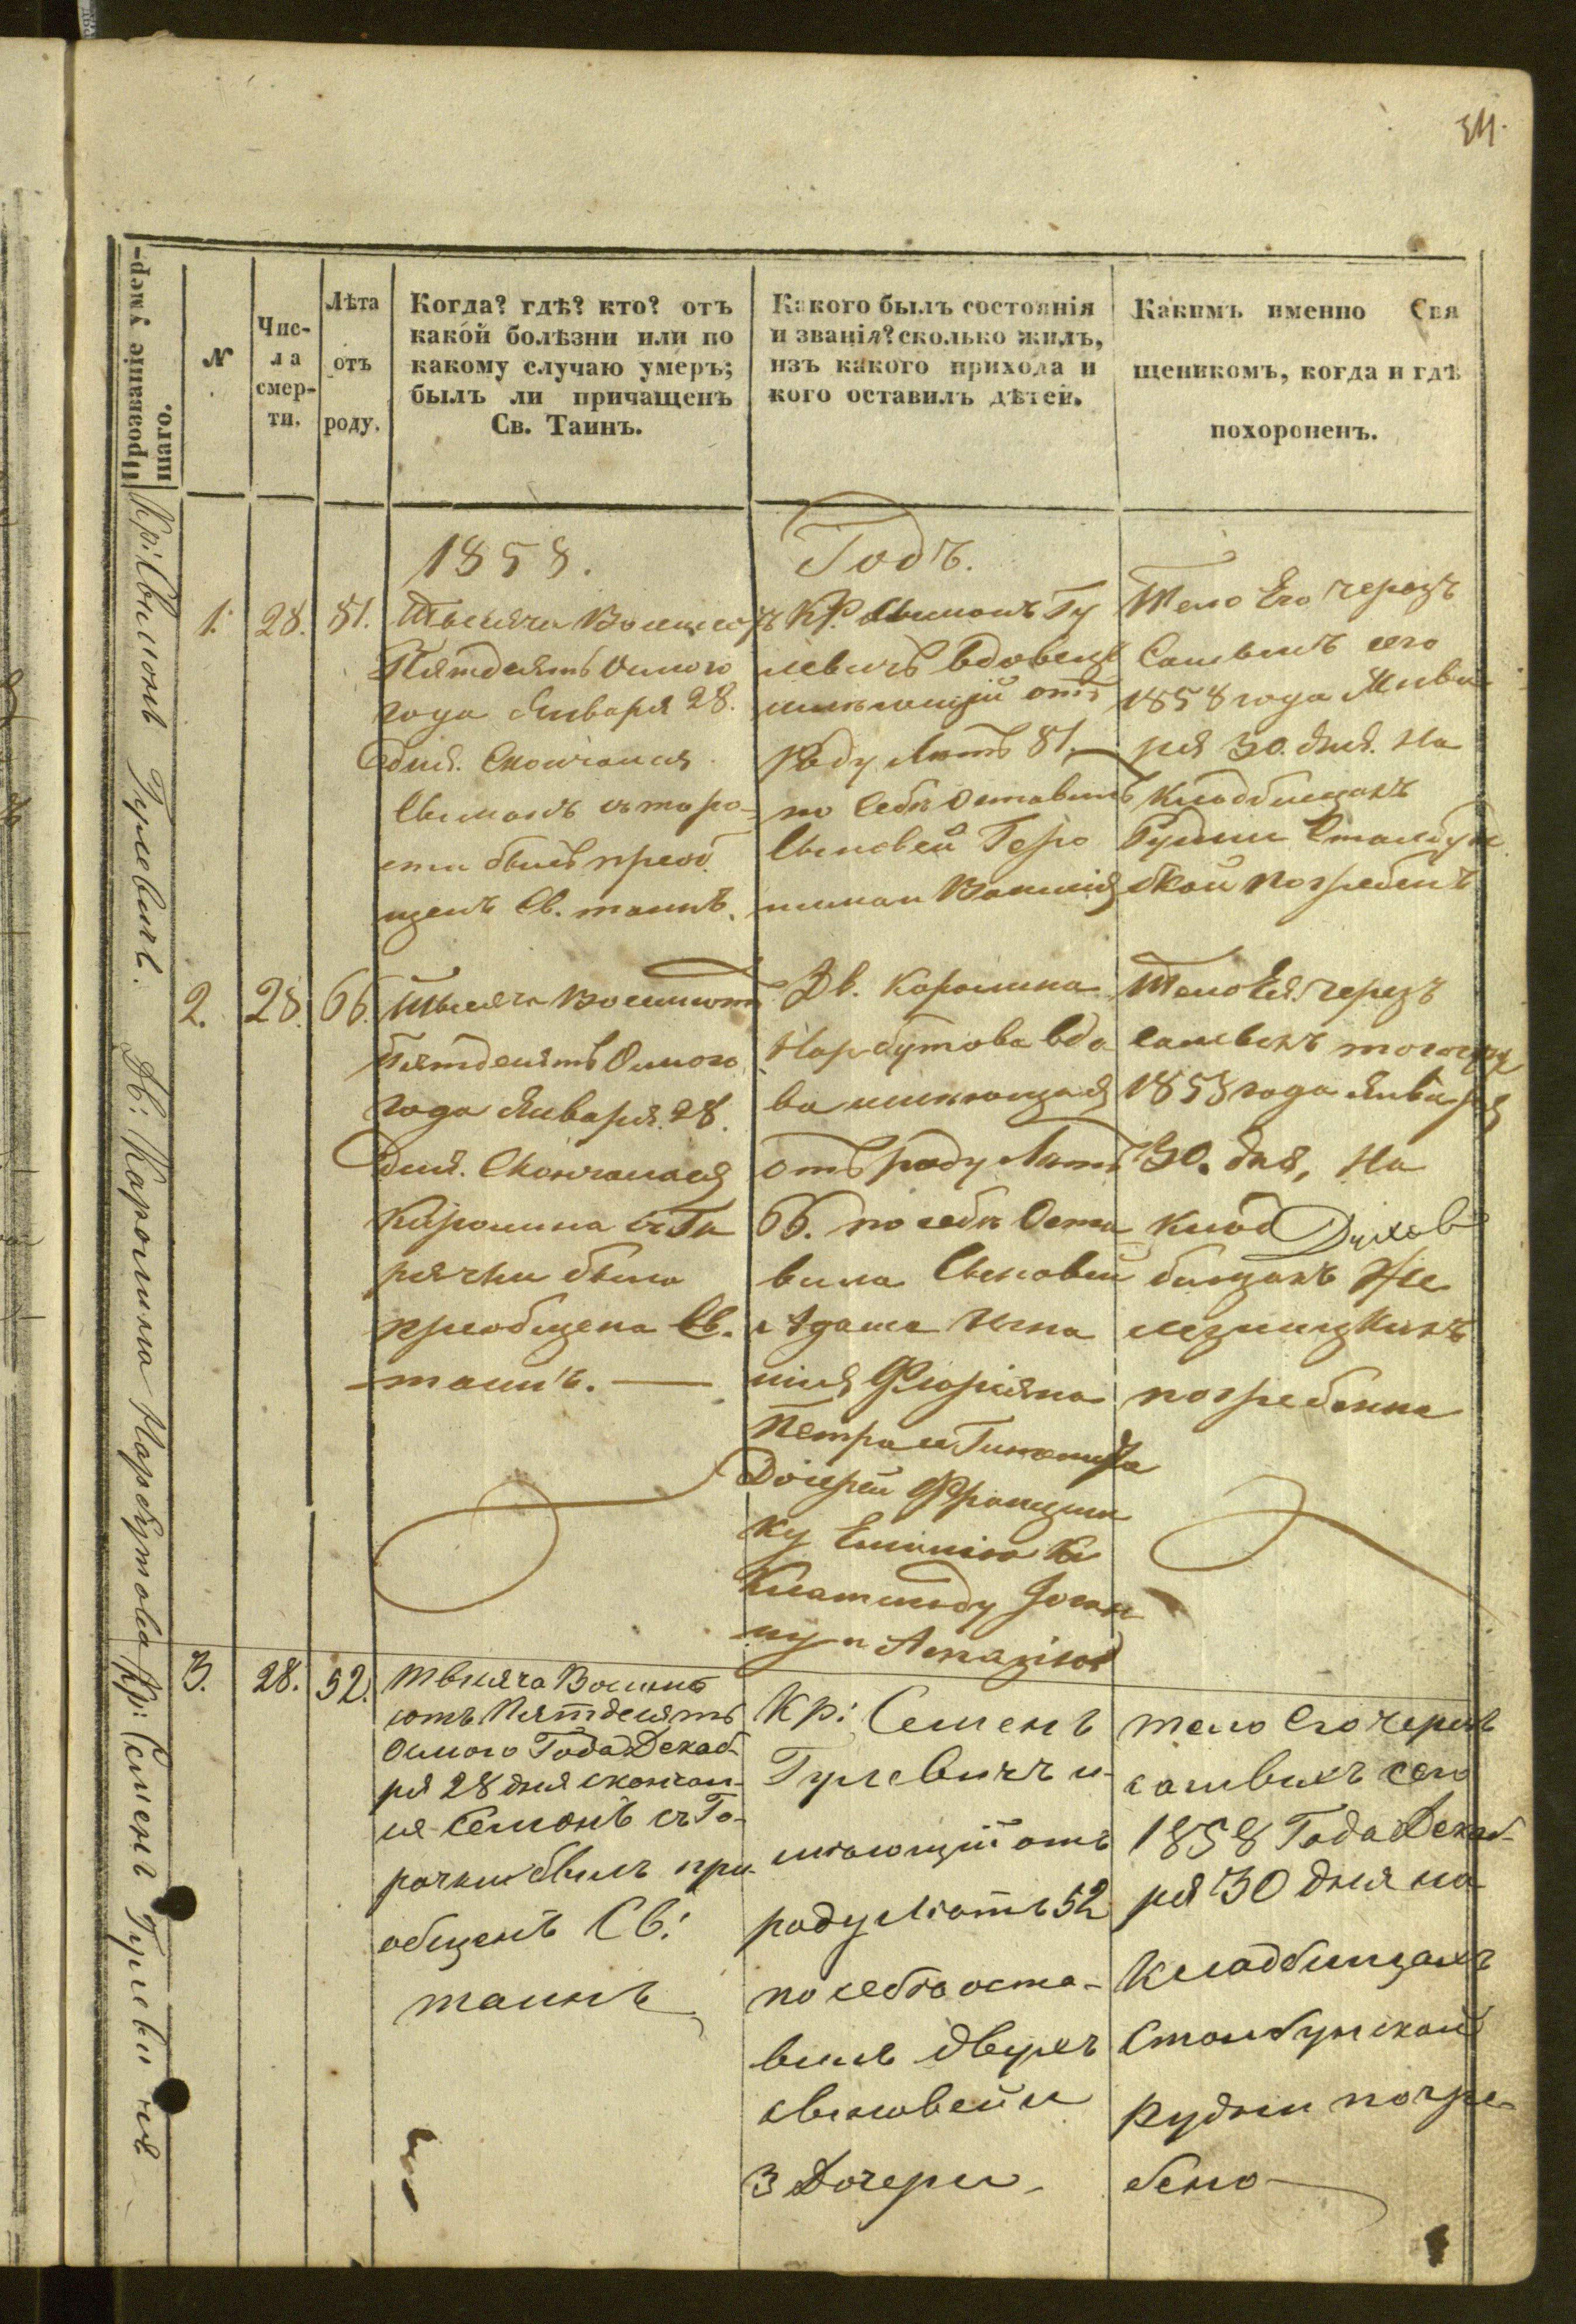 34.
Прозваніе умер-
шаго.
№
Чис-
ла
смер-
ти.
Лѣта
отъ
роду.
Когда? гдѣ? кто? отъ
какой болѣзни или по
какому случаю умеръ;
былъ ли причащенъ
Св. Таинъ.
Какого былъ состоянія
и званія? сколько жилъ,
изъ какого прихода и
кого оставилъ дѣтей.
Какимъ именно Свя
щеникомъ, когда и гдѣ
похороненъ.
1858.
Годъ.
Кр: Сымонъ Гулевичъ.
1.
28.
81.
Тысяча Восмьсотъ
Пятдесятъ Осмого
года Января 28.
дня. Скончался
Сымонъ съ таро-
сти былъ преоб
щенъ Св. таинъ.
Кр. Сымонъ Гу
левичъ вдовецъ
имѣющій отъ
роду Лѣтъ 81.
по Себѣ Оставилъ
Сыновей Геро
нима и
Тело Его черезъ
сего
1858 года Янва
ря 30. дня. На
Кладбищахъ
Рудни Сталбун
ской погребенъ
Дв: Каролина Нарбутова
2.
28.
66.
Тысяча Восмьсотъ
Пятдесятъ Осмого
года Января. 28.
дня. Скончалася
Каролина съ Га
рячки была
преобщена Св.
таинъ.
Дв. Каролина
Нарбутова вдо
ва имѣющая
отъ роду Лѣтъ
66. по себѣ Оста
вила Сыновей
Адама Игна
тія Флоріяна
Петра и
Дочерей Францишк
ку Емилію
Клатильду
ну и
Тело Ея. черезъ
тогожъ
1858 года Января
30. дня, На
Клад
бищахъ
погребенна
Кр: Семенъ Гулевичъ
3.
28.
52.
Тысяча Восмь
сотъ Пятдесятъ
Осмого Года Декаб-
ря 28 дня скончал-
ся Семонъ съ Го-
рачки былъ при-
общенъ Св:
таинъ
Кр: Семенъ
Гулевичъ и-
мѣющій отъ
роду Лѣтъ 52
по себѣ оста-
вилъ двухъ
сыновей и
3 Дочери.
тело Его черезъ
сего
1858 Года Декаб-
ря 30 дня на
Кладбищахъ
Столбунской
Рудни погре-
бено